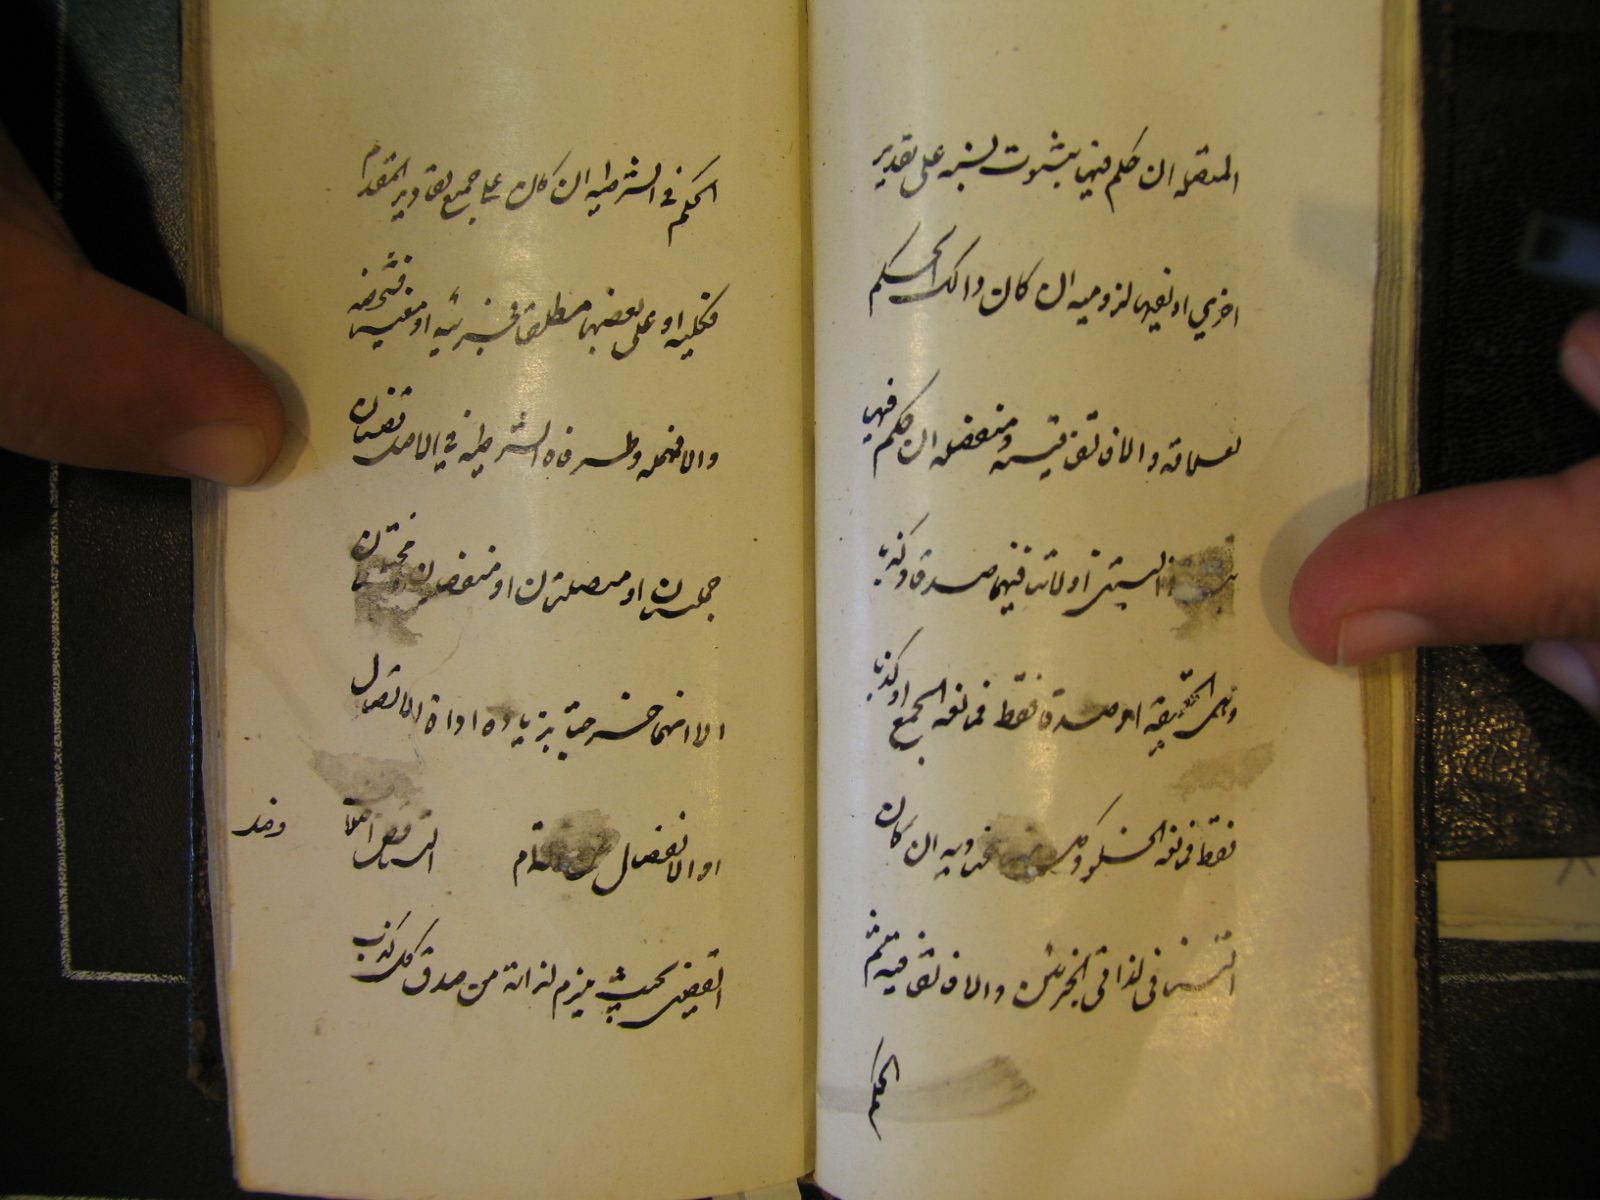 المتصله ان حكم فيها بثبوت نسبه على تقدير
اخري او نفيها لزوميه ان كان ذالك الحكم
لعلاقه والا فاتفاقيه و منفصله ان حكم فيها
النسبتين او لا تنافيهما صدقا و كذبا
وهى الحقيقيه او صدقا فقط فمانعه الجمع او كذبا
فقط فمانعه الخلو و كل ان كان
التنافى لذاتى الجزئين والا فاتفاقيه ثم
الحكم
الحكم فى الشرطيه ان كان على جميع تقادير المقدم
فكليه او على بعضها مطلقا فجزئيه او معينا فشخصيه
والا فمهمله و طرفاه الشرطيه فى الاصل قضيتان
حمليتان او متصلتان او منفصلتان او مختلفتان
الا انهما خرجتا بزياده اداة الاتصال
او الانفصال عن التمام التناقض اختلاف
القضيتين بحيث يلزم لذاته من صدق كل كذب